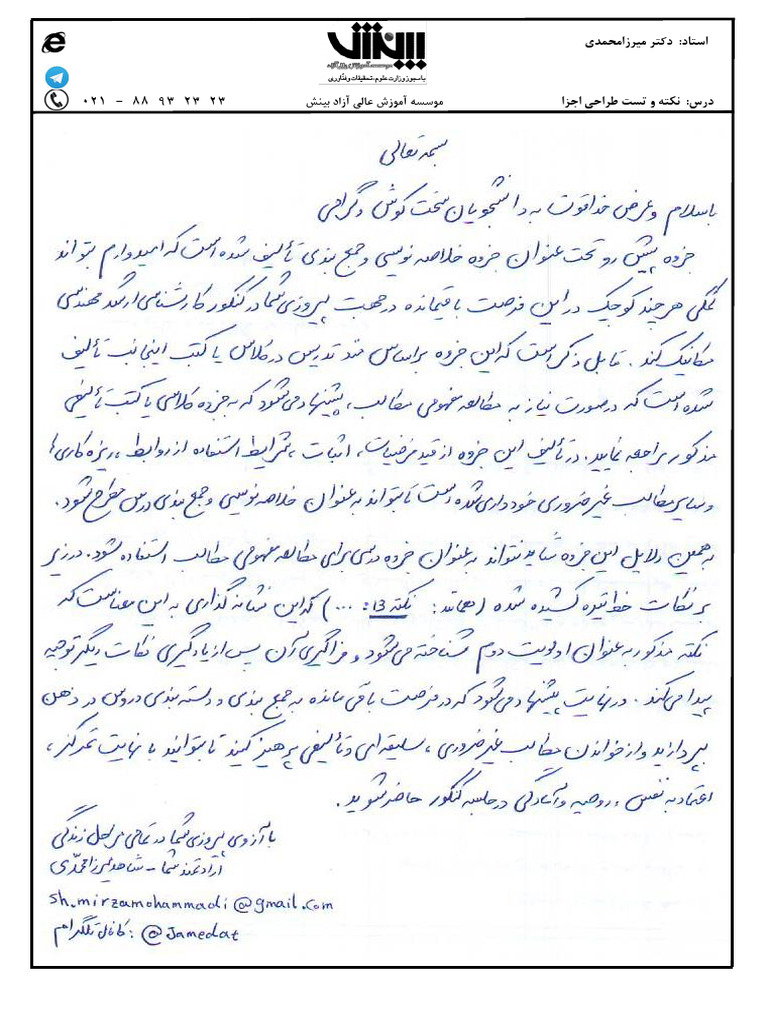 استاد: دکتر میرزامحمدی
بینش
موسسه آموزش عالی آزاد
با مجوز وزارت علوم، تحقیقات و فناوری
درس: نکته و تست طراحی اجزا
موسسه آموزش عالی آزاد بینش
۰۲۱ - ۸۸ ۹۳ ۲۳ ۲۳
بسمه تعالی
باسلام و عرض خداقوت به دانشجویان سخت کوش و گرامی
جزوه پیش رو تحت عنوان جزوه خلاصه نویسی و جمع بندی تألیف شده است که امیدوارم بتواند
کمکی هر چند کوچک در این فرصت باقیمانده در جهت پیروزی شما در کنکور کارشناسی ارشد مهندسی
مکانیک کند. قابل ذکر است که این جزوه براساس متد تدریس در کلاس یا کتب اینجانب تألیف
شده است که در صورت نیاز به مطالعه مفهومی مطالب، پیشنهاد می شود که به جزوه کلاسی یا کتب تألیفی
مذکور مراجعه نمایید. در تألیف این جزوه از قید فرضیات، اثبات، شرایط استفاده از روابط، ریزه کاری ها
و سایر مطالب غیر ضروری خودداری شده است تا بتواند به عنوان خلاصه نویسی و جمع بندی درس مطرح شود.
به همین دلایل این جزوه شاید نتواند به عنوان جزوه درسی برای مطالعه مفهومی مطالب استفاده شود. در زیر
بر نکات خط تیره کشیده شده (همانند: نکته 13: ...) که این نشانه گذاری به این معناست که
نکته مذکور به عنوان اولویت دوم شناخته می شود و فراگیری آن پس از یادگیری نکات دیگر توجیه
پیدا می کند. در نهایت پیشنهاد می شود که در فرصت باقی مانده به جمع بندی و دسته بندی دروس در ذهن
بپردازید و از خواندن مطالب غیر ضروری، سلیقه ای و تألیفی پرهیز کنید تا بتوانید با نهایت تمرکز،
اعتماد به نفس، روحیه و آمادگی در جلسه کنکور حاضر شوید.
با آرزوی پیروزی شما در تمامی مراحل زندگی
ارادتمند شما - شاهد میرزامحمدی
sh.mirzamohammadi@gmail.com
کانال تلگرام: @Jamedat